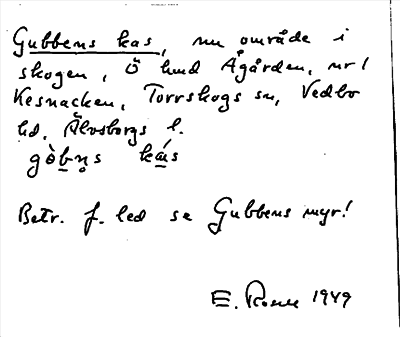 Gubbens kas, nu område i
skogen, Ö hmd Ågården, nr 1
Kesnacken, Torrskogs sn, Vedbo
hd. Älvsborgs l.
gòbn̥s kás
Betr. f. led se Gubbens myr!
E. 1949